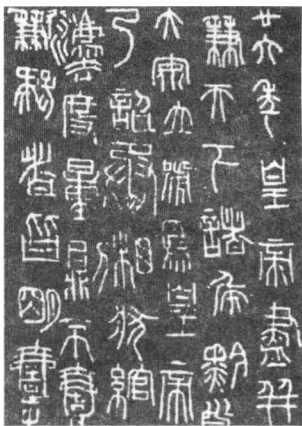 廿六年皇帝盡并
兼天下諸侯黔首
大安立號為皇帝
乃詔丞相狀綰
灋度量則不壹
歉疑者皆明壹